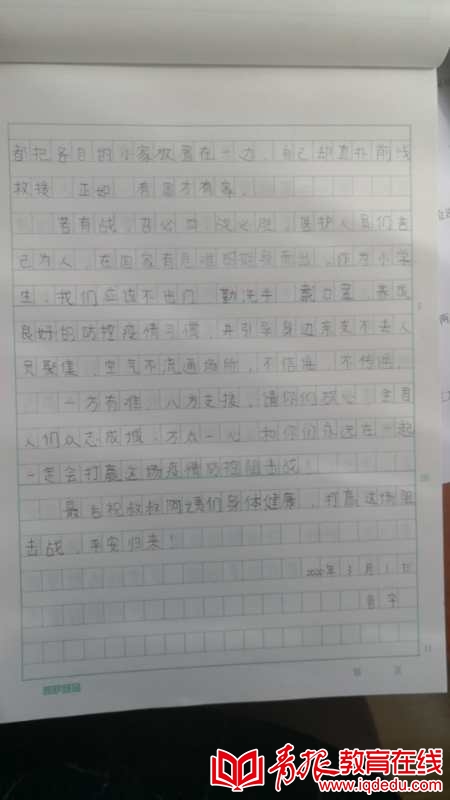 都把各自的小家放置在一边，自己却直扑前线
救援，正如，有国才有家。
若有战，召必回，战必胜，医护人员们舍
己为人，在国家有危难的时候挺身而出，作为小学
生，我们应该不出门，勤洗手，戴口罩，养成
良好的防控疫情习惯，并引导身边亲友不去人
员聚集，空气不流通场所，不信谣，不传谣，
一方有难，八方支援，请你们放心，全国
人们众志成城，万众一心，和你们永远在一起
一定会打赢这场疫情防控阻击战！
最后祝叔叔阿姨们身体健康，打赢这场阻
击战，平安归来！
2020年3月1日
第 页
青报教育在线
www.iqdedu.com